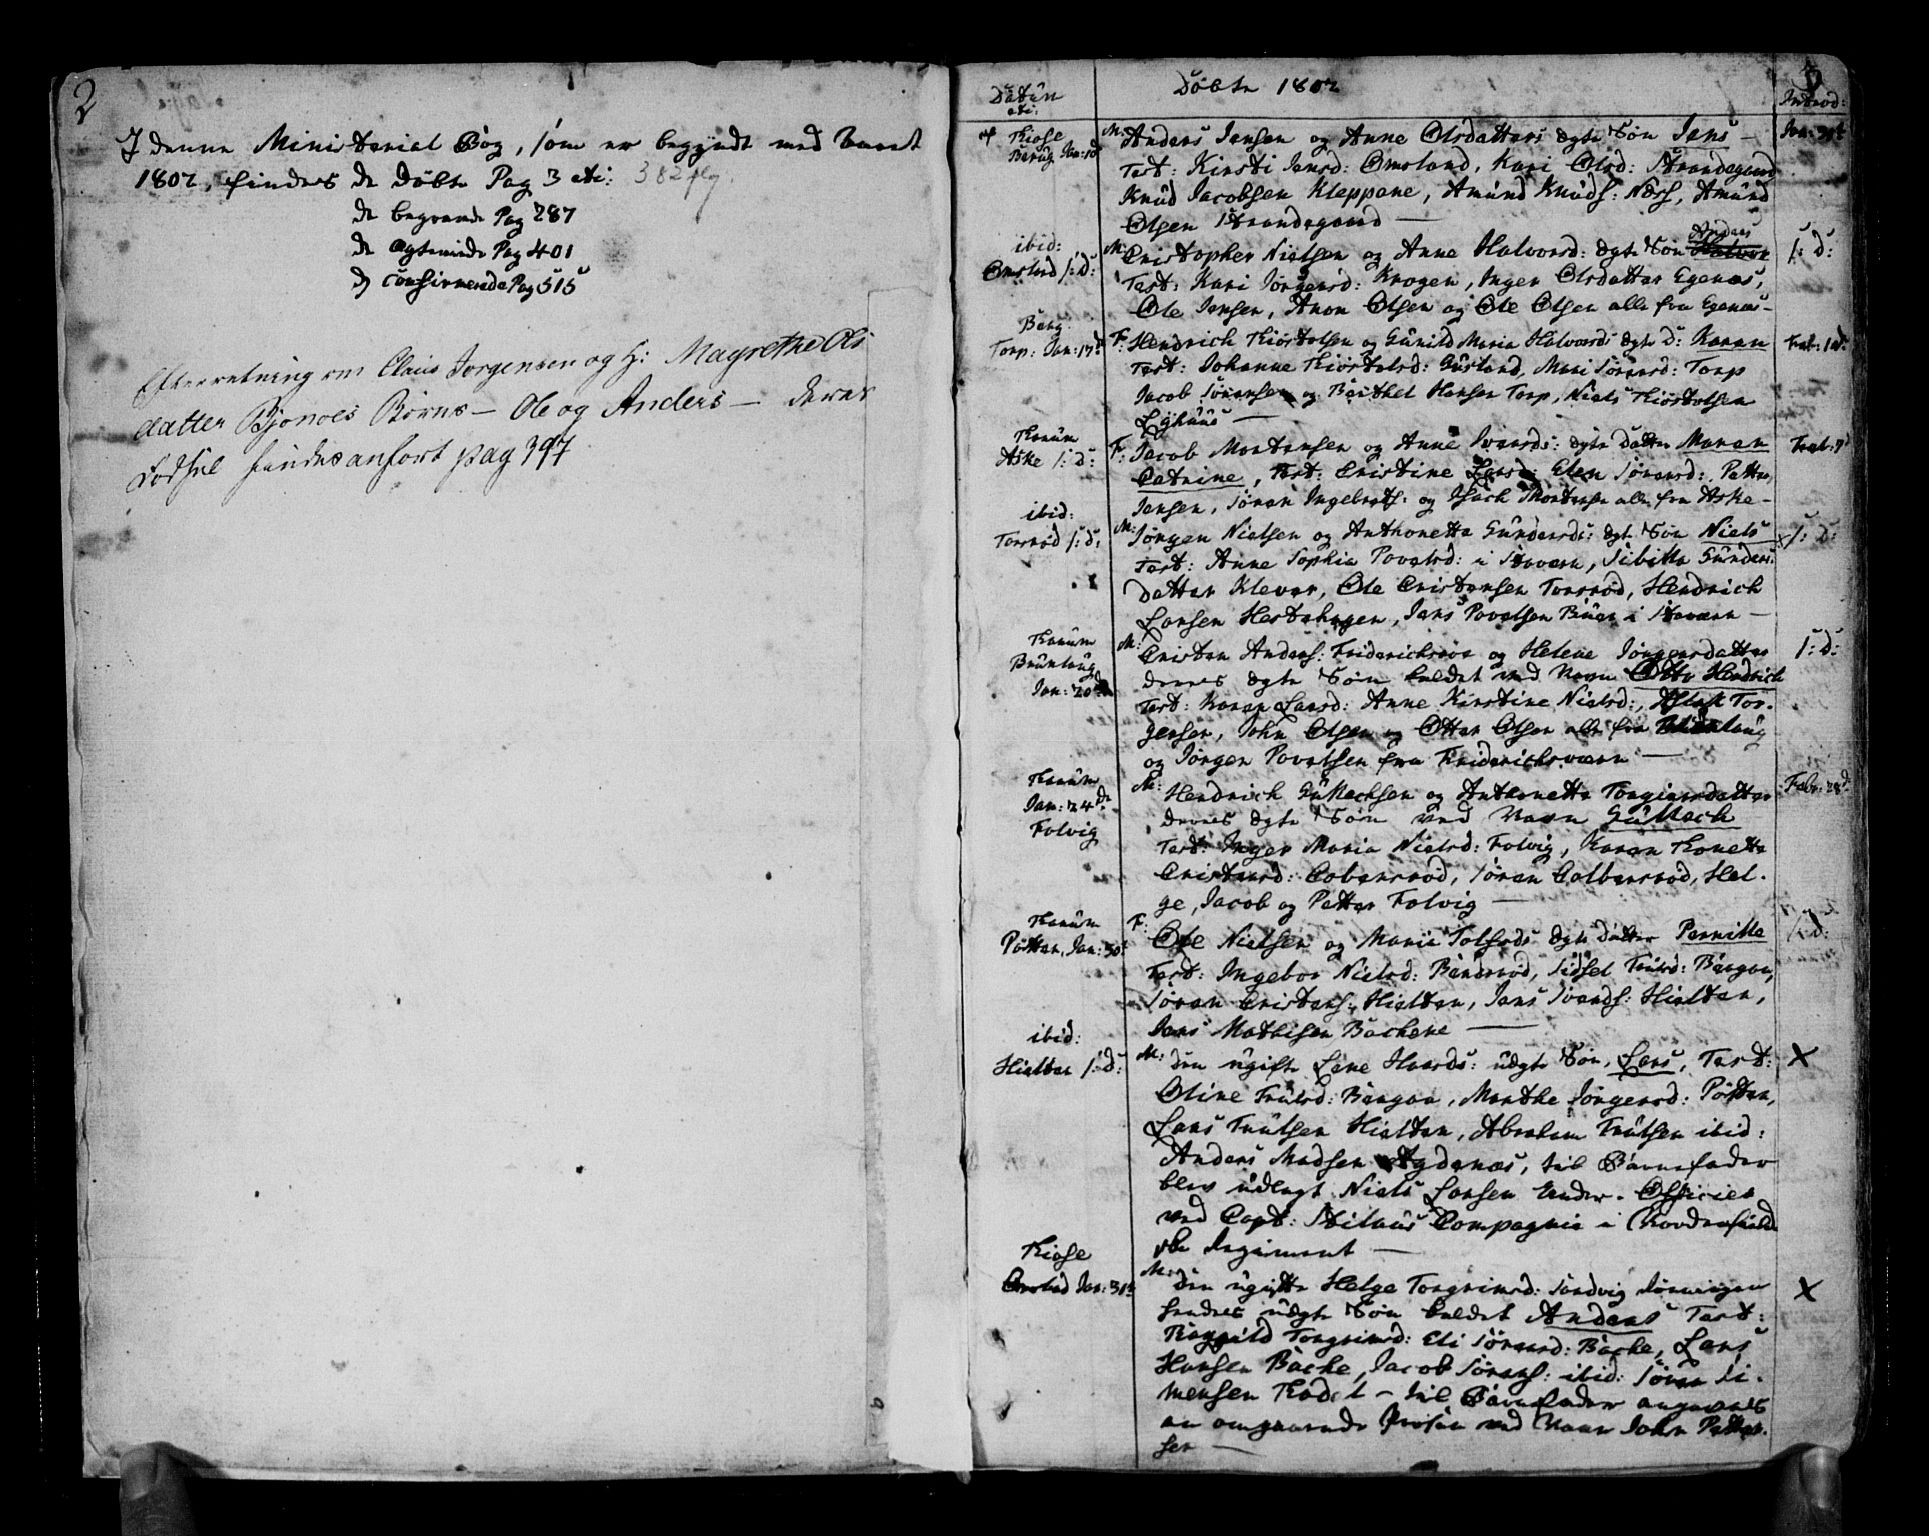 2
I denne Ministerial Bog, som er begyndt med Aaret
1802, findes de Døbte Pag 3 etc: 382 flg.
de begravede Pag 287
de egteviede Pag 401
de Confirmerede Pag 515
Efterretning om Claus Jorgensen og H: Magrethe Ols
datter Bjonnes Børns – Ole og Anders – deres
Fodsel findes anfort pag 397
Datum
etc:
Døbte 1802
3
Introd:
Kiose
Jan: 1d
M: Anders Jensen og Anne Olsdatters ægte Søn Jens –
Jan: 31t
Test: Kirsti Jensd: Omsland, Kari Olsd: Strandegaard
Knud Jacobsen Kleppane, Amund Knuds: Næss, Amund
Olsen Strandegaard –
ibid:
Omslid s: d:
M: Cristopher Nielsen og Anne Halvord: ægte Søn Halvor Anders
s: d:
Test: Kari Jørgensd: Krogen, Inger Olsdatter Egenæs,
Ole Jensen, Anon Olsen og Ole Olsen alle fra Egenæs –
Berg
Torp: Jan: 17d
F: Hendrich Kiøstolsen og Gunild Maria Halvords ægte D: Karen
Feb: 1d:
Test: Johanne Kiøstolsd: Gusland, Mari Sørensd: Torp
Jacob Sørensen og Berthel Hansen Torp, Niels Kiøstolsen
Lyhuus –
Tanum
Aske s: d:
F: Jacob Mortensen og Anne Iversd: ægte Datter Maren
Feb: 7d
Catrine, Test: Cristine Larsd: Elen Sørensd: Petter
Jensen, Søren Ingebrets: og Isach Mortensen alle fra Aske –
ibid:
Torsrød s: d:
M: Jørgen Nielsen og Anthonette Gundersd: ægte Søn Niels
s: d:
Test: Anne Sophia Povelsd: i Staværn, Sibille Gunders
datter Klever, Ole Cristensen Torsrød, Hendrich
Larsen Hestehagen, Jens Povelsen Buer i Staværn –
Tanum
Brunlaug
Jan: 20d
M: Cristen Anders: Friderichsværn og Helene Jørgensdatter
s: d:
deres ægte Søn kaldet ved Navn Otto Hendrich
Test: Karen Larsd: Anne Kirstine Nielsd:, Aslak Tor-
gersen, John Olsen og Otter Olsen alle fra Brunlaug
og Jørgen Povelsen fra Friderichsværn –
Tanum
Jan: 24de
Folvig
M: Hendrich Gullachsen og Anthonette Torgiersdatter
Febr: 28d
deres ægte Søn ved Navn Gullach
Test: Inger Maria Nielsd: Folvig, Karen Tonette
Cristensd: Cobersrød, Søren Colbersrød, Hel-
ge, Jacob og Petter Folvig –
Tanum
Pøtten, Jan: 30t
F: Ole Nielsen og Marie Tolfsds ægte Datter Pernille
s: d:
Test: Ingebor Nielsd: Bendsrød, Sidsel Trulsd: Bergan,
Søren Cristens: Hielten, Jens Ivers: Hielten,
Jens Mathisen Bachene –
ibid:
Hielten s: d:
M: Den ugifte Lene Iversds: uægte Søn, Lars, Test:
X
Oline Trulsd: Bergan, Marthe Jørgensd: Pøtten,
Lars Trulsen Hielten, Abraham Trulsen ibid:
Anders Madsen Agdenæs, til Barnefader
blev udlagt Niels Larsen Under-Officier
ved Capt: Compagnie i Nordenfield
ske Regiment –
Kiose
Jan: 31t
M: Den ugifte Helge Torgrimsd: Sandvig
X
hendes uægte Søn kaldet Anders Test:
Ragnild Torgrimsd: Eli Sørensd: Bache, Lars
Hansen Bache, Jacob Sørens: ibid: Søren Si-
mensen – til Barnefader angaves
en omgaaende Person ved Navn John Petter-
sen –